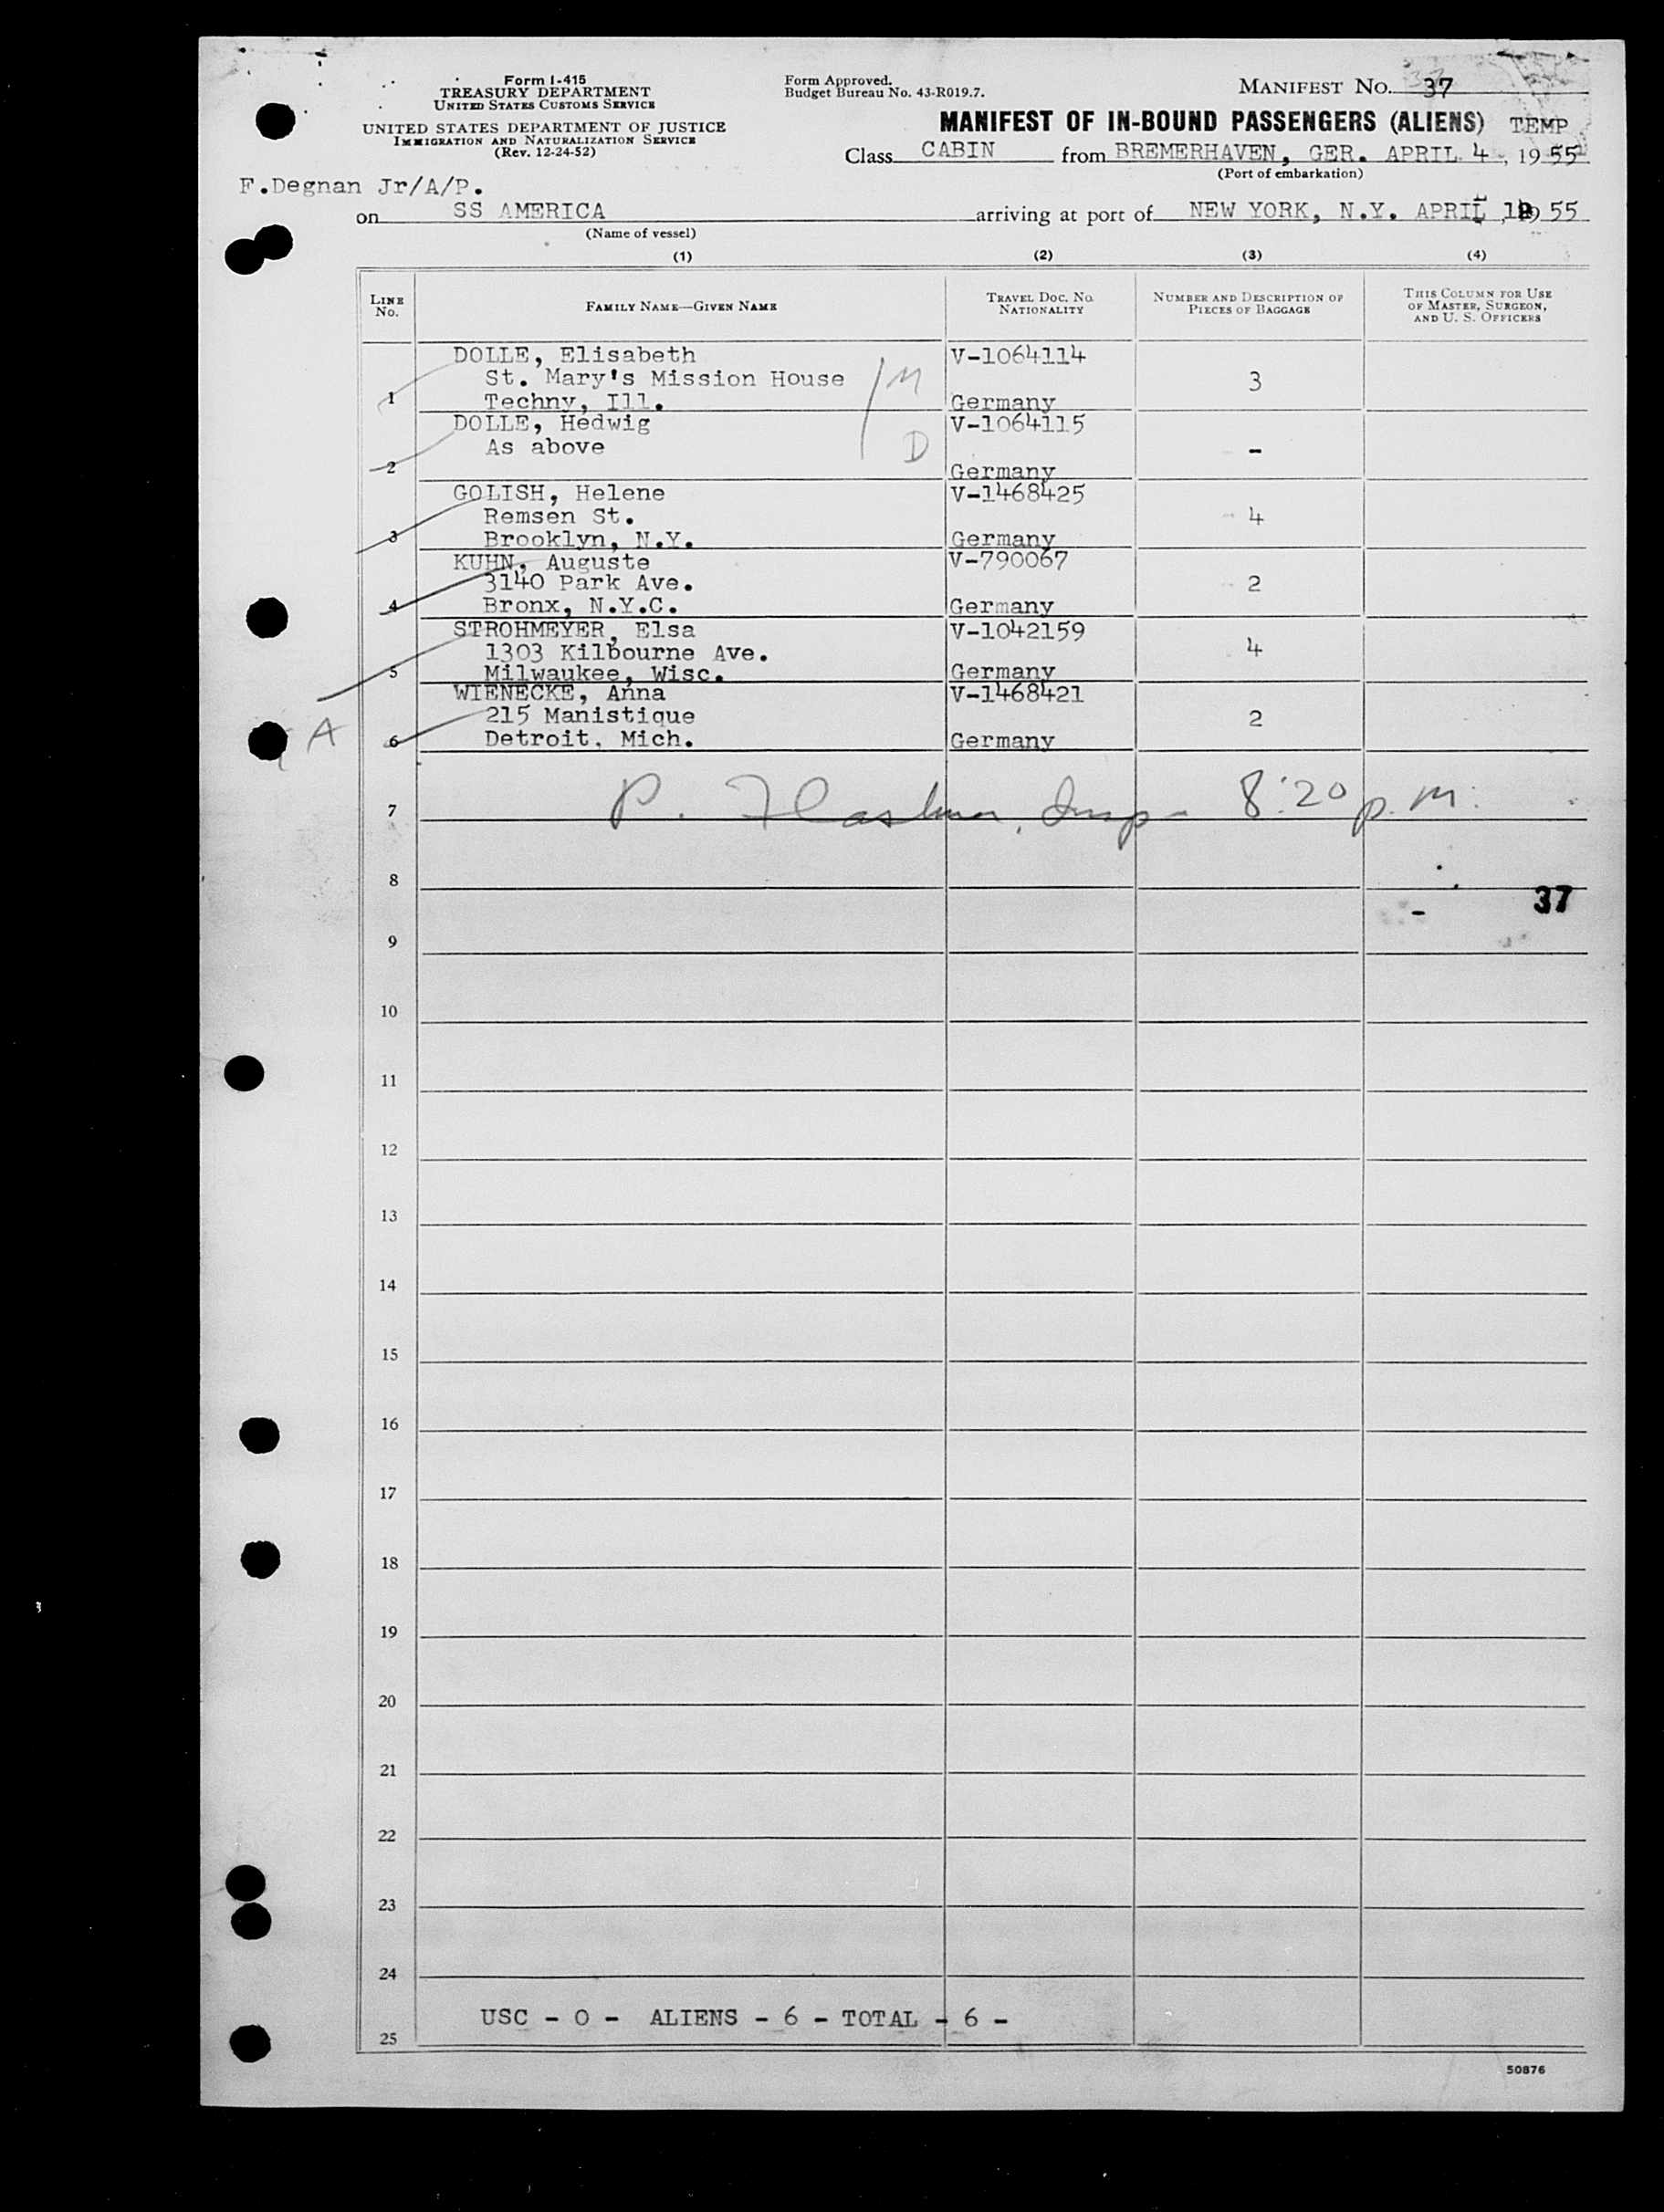 Form I-415
TREASURY DEPARTMENT
UNITED STATES CUSTOMS SERVICE
UNITED STATES DEPARTMENT OF JUSTICE
IMMIGRATION AND NATURALIZATION SERVICE
(Rev. 12-24-52)
Form Approved.
Budget Bureau No. 43-R019.7.
MANIFEST NO. 37
MANIFEST OF IN-BOUND PASSENGERS (ALIENS) TEMP
Class CABIN from BREMERHAVEN, GER. APRIL 4, 1955
(Port of embarkation)
F.Degnan Jr/A/P.
on SS AMERICA arriving at port of NEW YORK, N.Y. APRIL 55
(Name of vessel)
(1) (2) (3) (4)
LINE NO. FAMILY NAME—GIVEN NAME TRAVEL DOC. NO. NATIONALITY NUMBER AND DESCRIPTION OF PIECES OF BAGGAGE THIS COLUMN FOR USE OF MASTER, SURGEON, AND U. S. OFFICERS
DOLLE, Elisabeth V-1064114
St. Mary's Mission House M 3
1 Techny, Ill. Germany
DOLLE, Hedwig V-1064115
As above D -
2 Germany
GOLISH, Helene V-1468425
Remsen St. 4
3 Brooklyn, N.Y. Germany
KUHN, Auguste V-790067
3140 Park Ave. 2
4 Bronx, N.Y.C. Germany
STROHMEYER, Elsa V-1042159
1303 Kilbourne Ave. 4
5 Milwaukee, Wisc. Germany
WIENECKE, Anna V-1468421
215 Manistique 2
A 6 Detroit, Mich. Germany
7 P. Insp 8:20 p.m.
8
37
9
10
11
12
13
14
15
16
17
18
19
20
21
22
23
24
USC - 0 - ALIENS - 6 - TOTAL - 6 -
25
50876